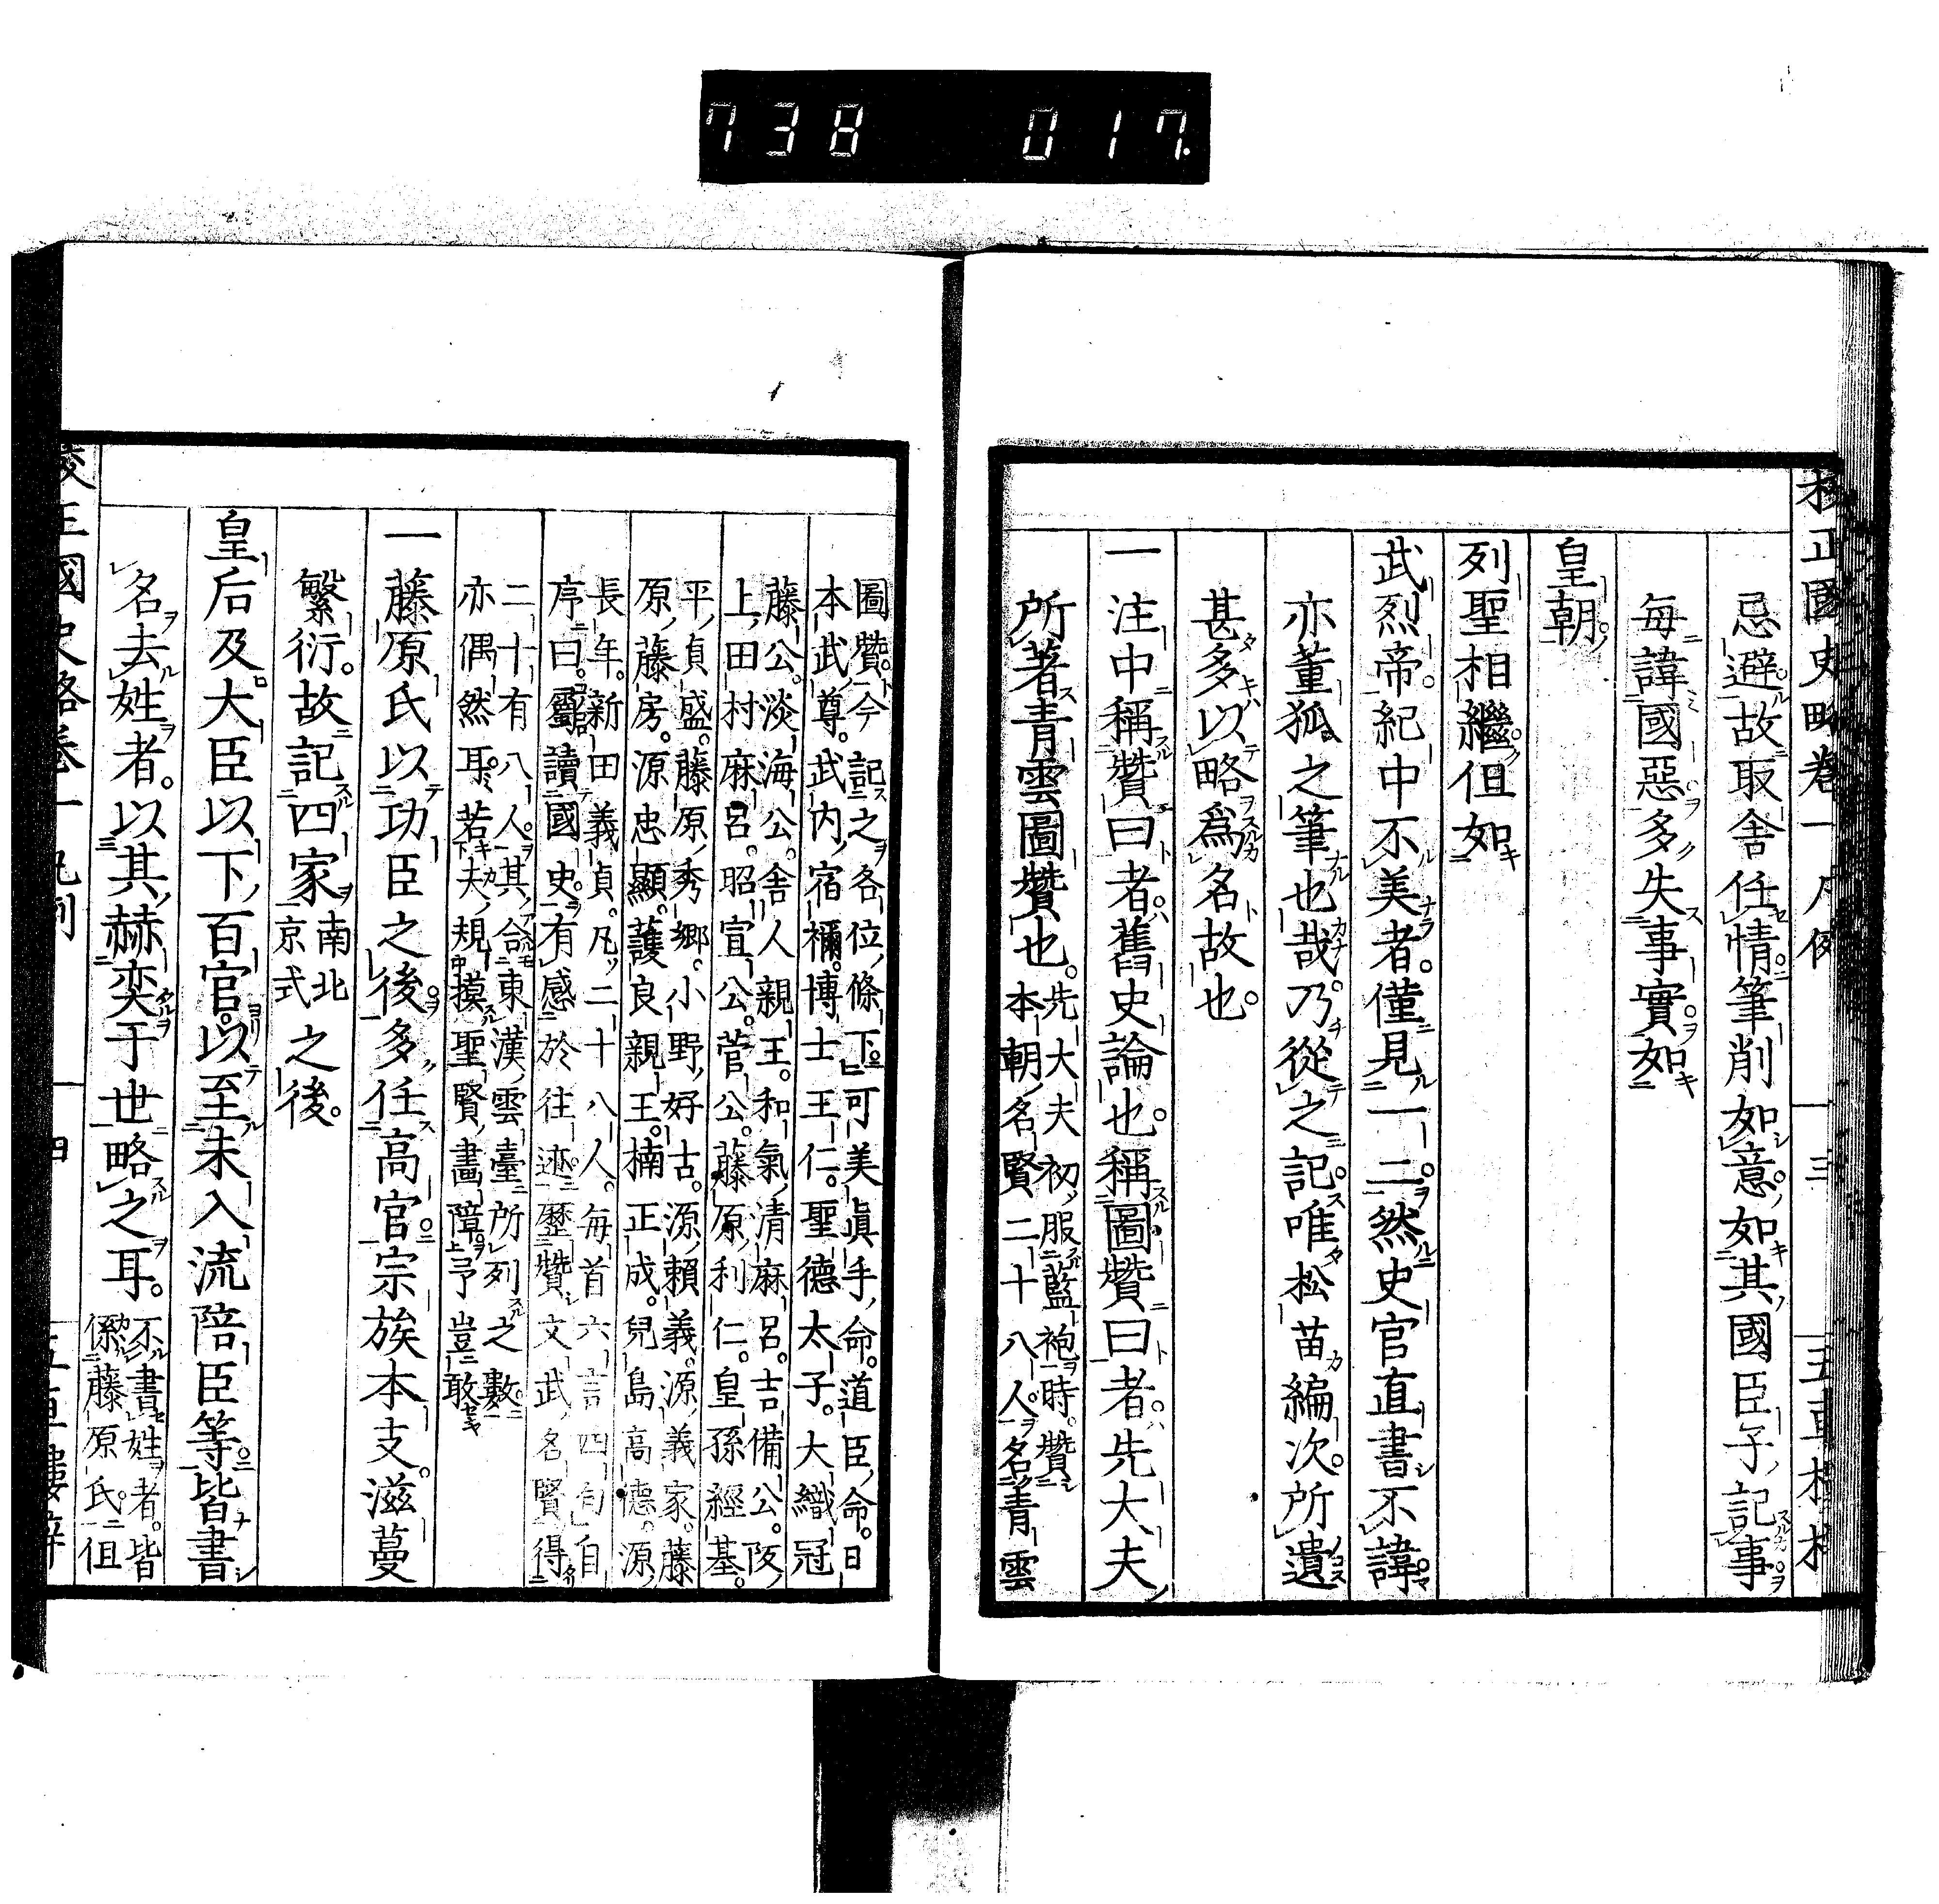 738 017
校正國史略卷一凡例 三 五車樓梓
忌避故取舍任情筆削如意如其國臣子記事
每諱國惡多失事實如
皇朝
列聖相繼但如
武烈帝紀中不美者僅見一二然史官直書不諱
亦董狐之筆也哉乃從之記唯松苗編次所遺
甚多以略爲名故也
一注中稱贊曰者舊史論也稱圖贊曰者先大夫
所著青雲圖贊也
先大夫初服藍袍時贊
本朝名賢二十八人名青雲
圖贊今記之各位條下可美眞手命道臣命日
本武尊武內宿禰博士王仁聖德太子大織冠
藤公淡海公舍人親王和氣清麻呂吉備公阪
上田村麻呂昭宣公菅公藤原利仁皇孫經基
平貞盛藤原秀鄉小野好古源賴義源義家藤
原藤房源忠顯護良親王楠正成兒島高德源
長年新田義貞凡二十八人每首六言四句自
序曰予讀國史有感於往迹歷贊文武名賢得
二十有八人其合東漢雲臺所列之數
亦偶然耳若夫規摸聖賢畫障予豈敢
一藤原氏以功臣之後多任高官宗族本支滋蔓
繁衍故記四家南北京式之後
皇后及大臣以下百官以至未入流陪臣等皆書
名去姓者以其赫奕于世略之耳
不書姓者皆
係藤原氏但
校正國史略卷一凡例 四 五車樓梓